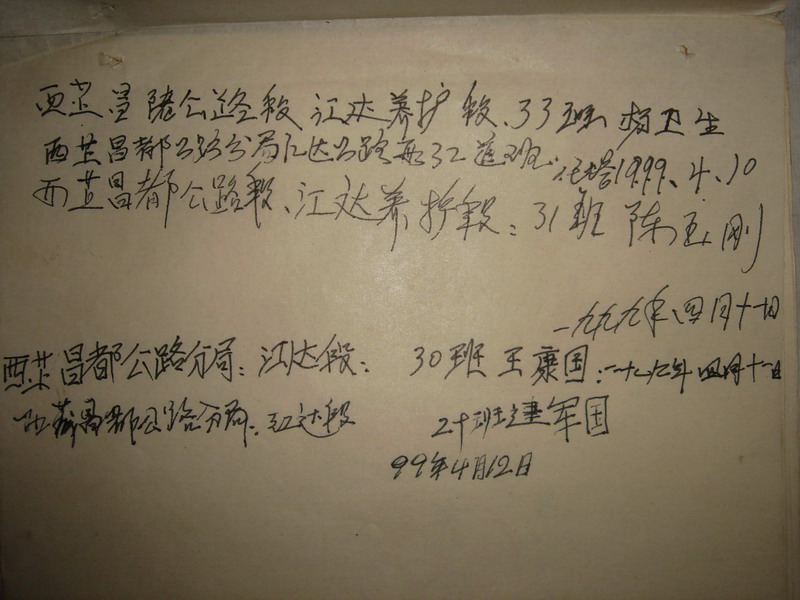 西芷昌陼公路段江达养护段、33班 杨卫生
西芷昌都公路分局江达公路段32道班 1999、4、10
西芷昌都公路段、江达养护段：31班 陈玉刚
一九九九年四月十日
西芷昌都公路分局：江达段： 30班 王康国：一九九九年四月十一日
西藏昌都公路分局：江达段
班 建军国
99年4月12日